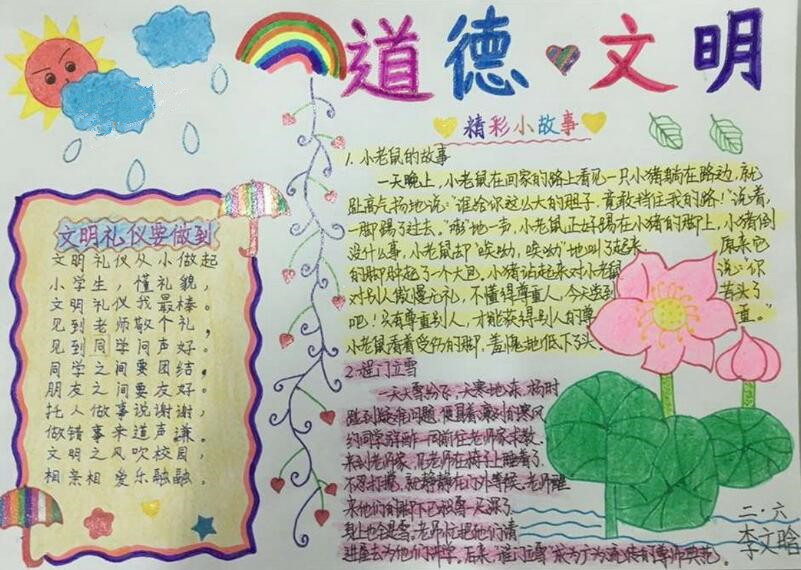 道德文明
精彩小故事
文明礼仪要做到
文明礼仪从小做起
小学生，懂礼貌，
文明礼仪我最棒。
见到老师敬个礼，
见到同学问声好。
同学之间要团结，
朋友之间要友好。
托人做事说谢谢，
做错事来道声谦。
文明之风吹校园，
相亲相爱乐融融。
1.小老鼠的故事
一天晚上，小老鼠在回家的路上看见一只小猪躺在路边，就
趾高气扬地说："谁给你这么大的胆子，竟敢挡住我的路！"说着，
一脚踢了过去。"嘭"地一步，小老鼠正好踢在小猪的脚上，小猪倒
没什么事，小老鼠却"唉呦，唉呦"地叫了起来。原来它
的脚肿起了一个大包，小猪站起来对小老鼠说："你
对别人傲慢无礼，不懂得尊重人，今天尝到苦头了
吧！只有尊重别人，才能获得别人的尊重。"
小老鼠看着受伤的脚，羞愧地低下头。
2.程门立雪
一天大雪纷飞，天寒地冻，杨时
碰到疑难问题，便冒着凛冽的寒风
约同学一同前往老师家求教，
来到老师家，见老师在椅子上睡着了，
不忍打扰，就静静在门外等候。老师醒
来他们的脚下已积雪一尺深了，
身上也全是雪。老师忙把他们请
进屋去为他们讲学。后来，"程门立雪"成为广为流传的尊师典范。
二·六
李文晗